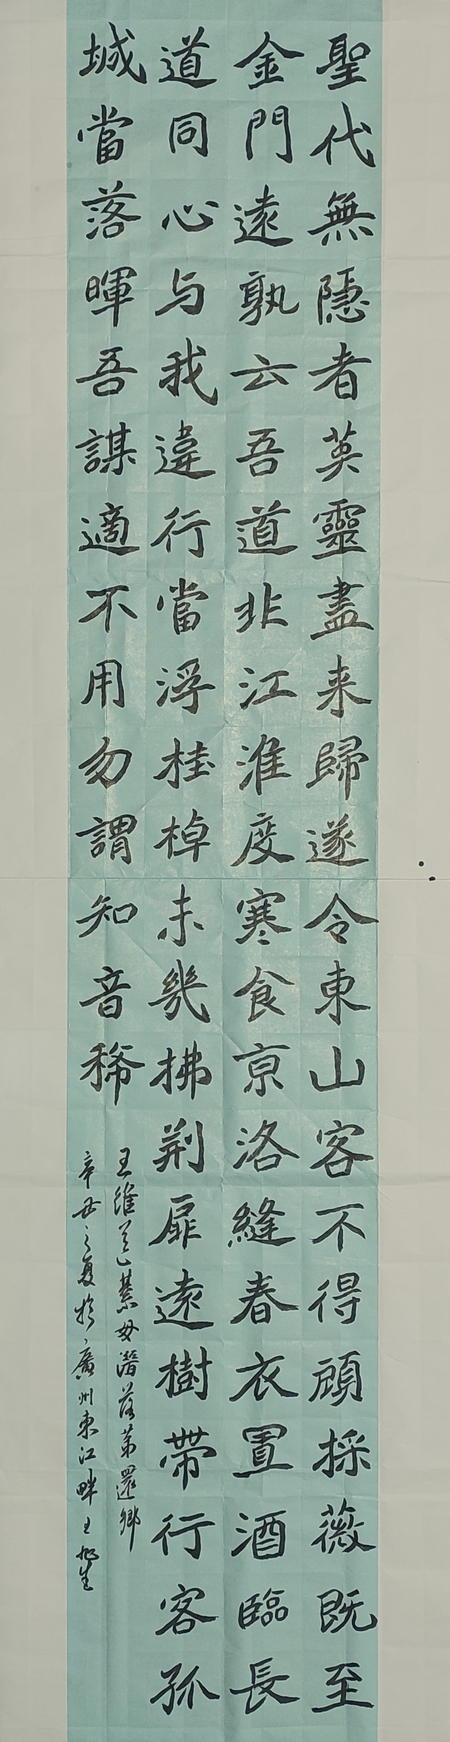 聖代無隱者英靈盡来歸遂令東山客不得頋採薇既至
金門遠孰云吾道非江淮度寒食亰洛縫春衣置酒臨長
道同心与我違行當浮桂棹未幾拂荆扉遠樹帶行客孤
城當落暉吾謀適不用勿謂知音稀
王維送綦毋潛落第還鄉
辛丑之夏於廣州東江畔王旭生